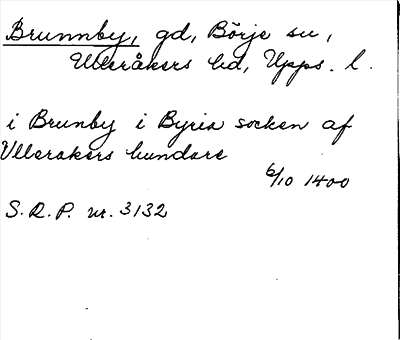 Brunnby, gd, Börje sn,
Ulleråkers hd, Upps. l.
i Brunby i Byria socken af
Vllerakers hundare
6/10 1400
S.R.P. nr. 3132